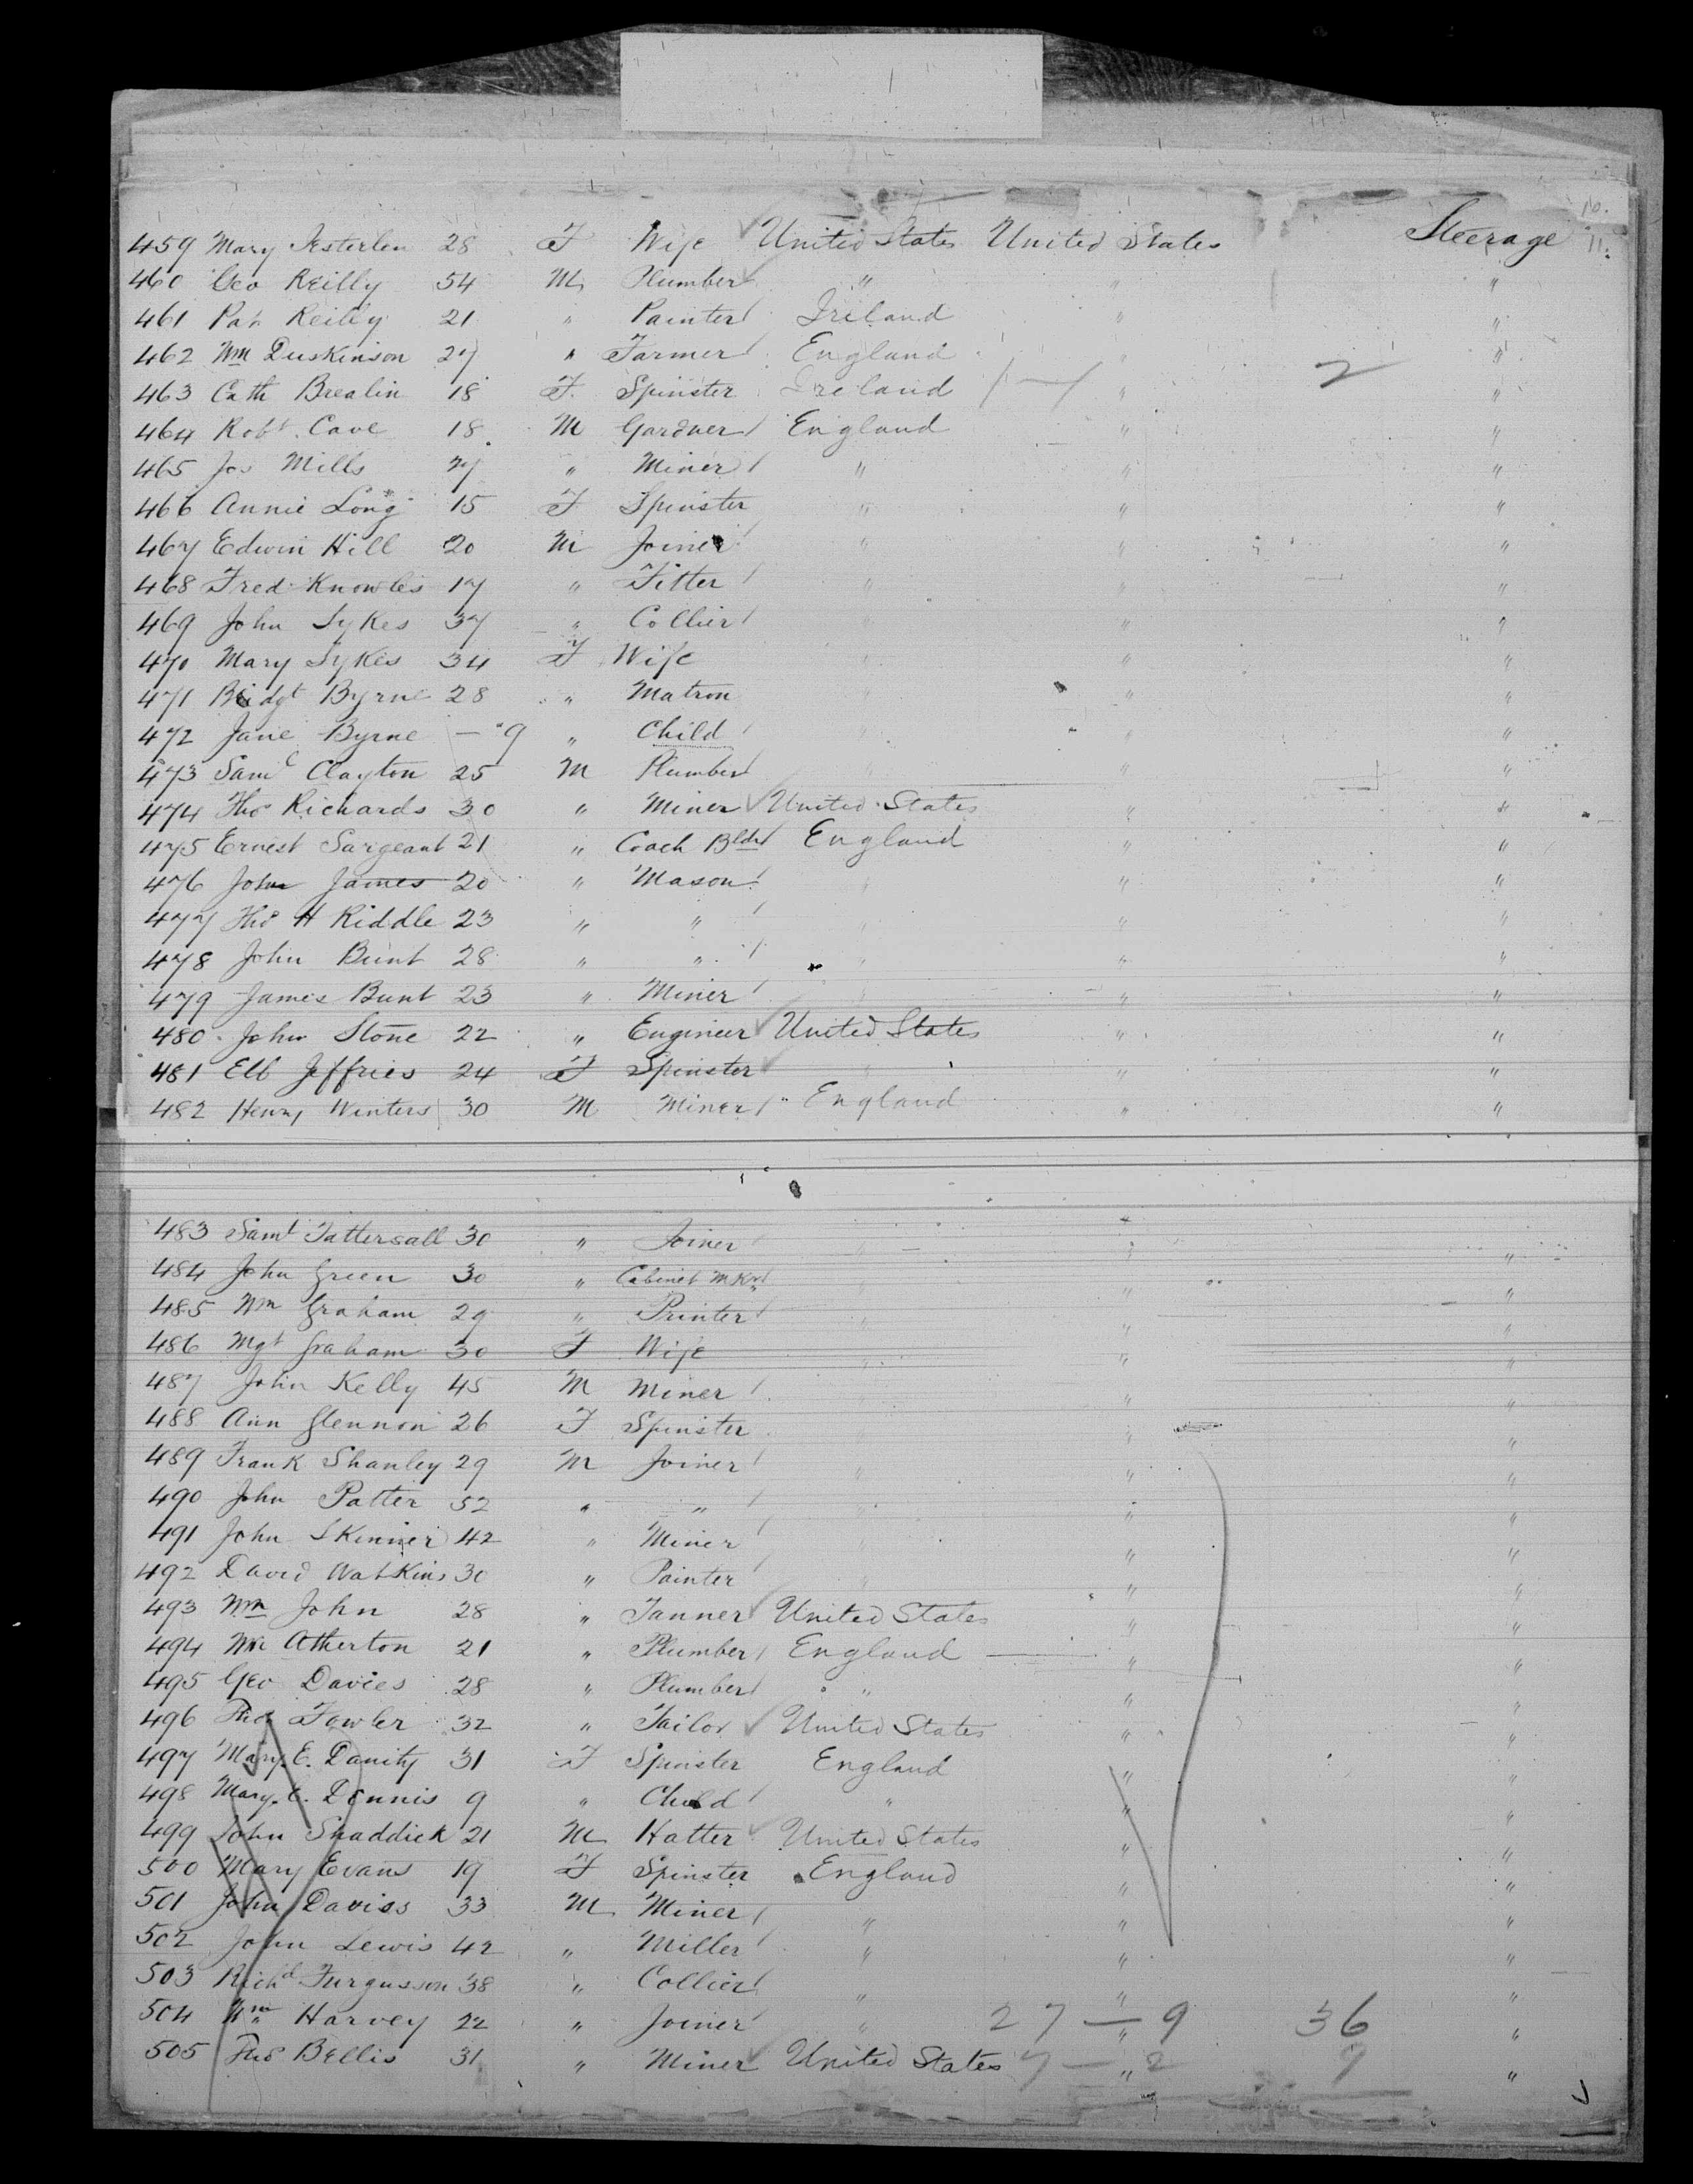 10.
459 Mary Testerlen 28 F Wife United States United States Steerage 11.
460 Geo Reilly 54 M Plumber " " "
461 Pat Reilly 21 " Painter Ireland " "
462 Wm Duskinson 27 " Farmer England " 2 "
463 Cath Brealin 18 F Spinster Ireland 1 — 1 " "
464 Robt. Cave 18 M Gardner England " "
465 Jos Mills 27 " Miner " " "
466 Annie Long 15 F Spinster " " "
467 Edwin Hill 20 M Joiner " " "
468 Fred Knowles 17 " Fitter " " "
469 John Sykes 37 " Collier " " "
470 Mary Sykes 34 F Wife " " "
471 Bridgt Byrne 28 " Matron " " "
472 Jane Byrne — "9 " Child " " "
473 Saml Clayton 25 M Plumber " " "
474 Thos Richards 30 " Miner United States " "
475 Ernest Sargeant 21 " Coach Bldr England " "
476 John James 20 " Mason " " "
477 Thos H Riddle 23 " " " " "
478 John Bunt 28 " " " " "
479 James Bunt 23 " Miner " " "
480 John Stone 22 " Engineer United States " "
481 Elb Jeffries 24 F Spinster " " "
482 Henry Winters 30 M Miner " England " "
483 Saml Tattersall 30 " Joiner " " "
484 John Green 30 " Cabinet Mkr " " "
485 Wm Graham 29 " Printer " " "
486 Mgt Graham 30 F Wife " " "
487 John Kelly 45 M Miner " "
488 Ann Glennon 26 F Spinster " "
489 Frank Shanley 29 M Joiner " " "
490 John Patter 52 " " " " "
491 John Skinner 42 " Miner " "
492 David Watkins 30 " Painter " " "
493 Wm John 28 " Tanner United States " "
494 Wm Atherton 21 " Plumber England " "
495 Geo Davies 28 " Plumber " " "
496 Fowler 32 " Tailor United States " "
497 Mary E. Danity 31 F Spinster England " "
498 Mary E. Dennis 9 " Child " " "
499 John Shaddick 21 M Hatter United States " "
500 Mary Evans 19 F Spinster England " "
501 John Daviss 33 M Miner " " "
502 John Lewis 42 " Miller " " "
503 Richd Furgusson 38 " Collier " " "
504 Wm Harvey 22 " Joiner " 27 — 9 " 36 "
505 Thos Bellis 31 " Miner United States 7 — 2 " 9 "